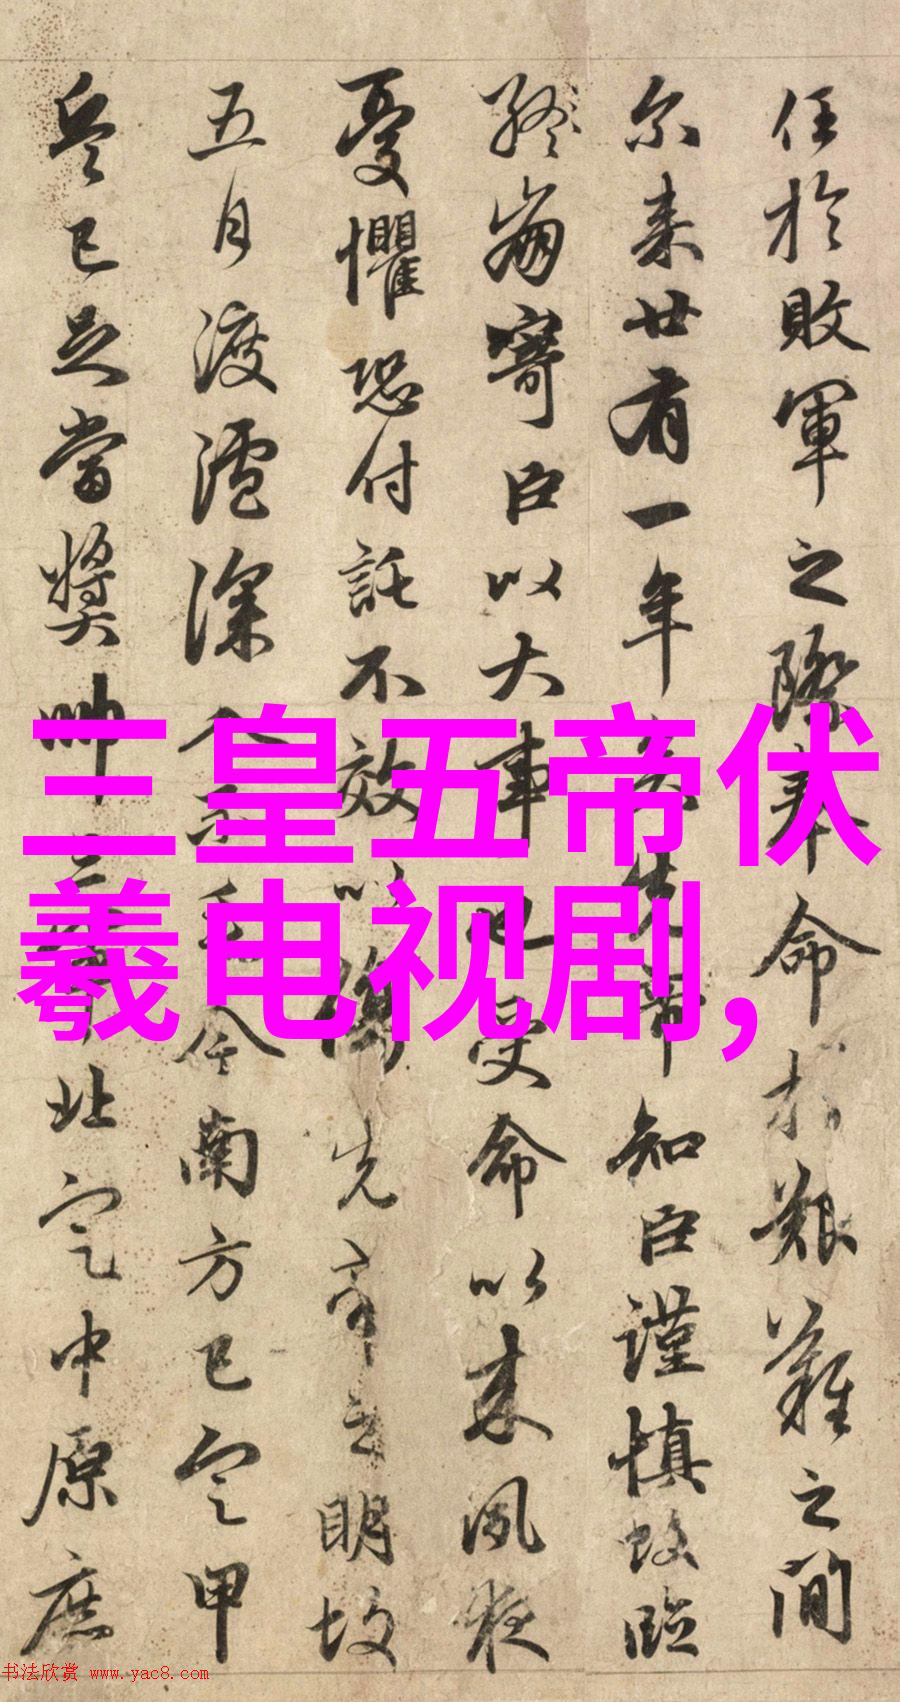 任於敗軍之際奉命於艱難之間
尔来廿有一年矣先帝知臣謹慎故臨
終崩寄臣以大事也受命以来夙夜
憂懼恐付託不效以傷先帝之明故
五月渡瀘深入不毛今南方已定甲
兵已足當獎帥三軍北定中原庶
三皇五帝伏
羲电视剧,
书法欣赏 www.yac8.com